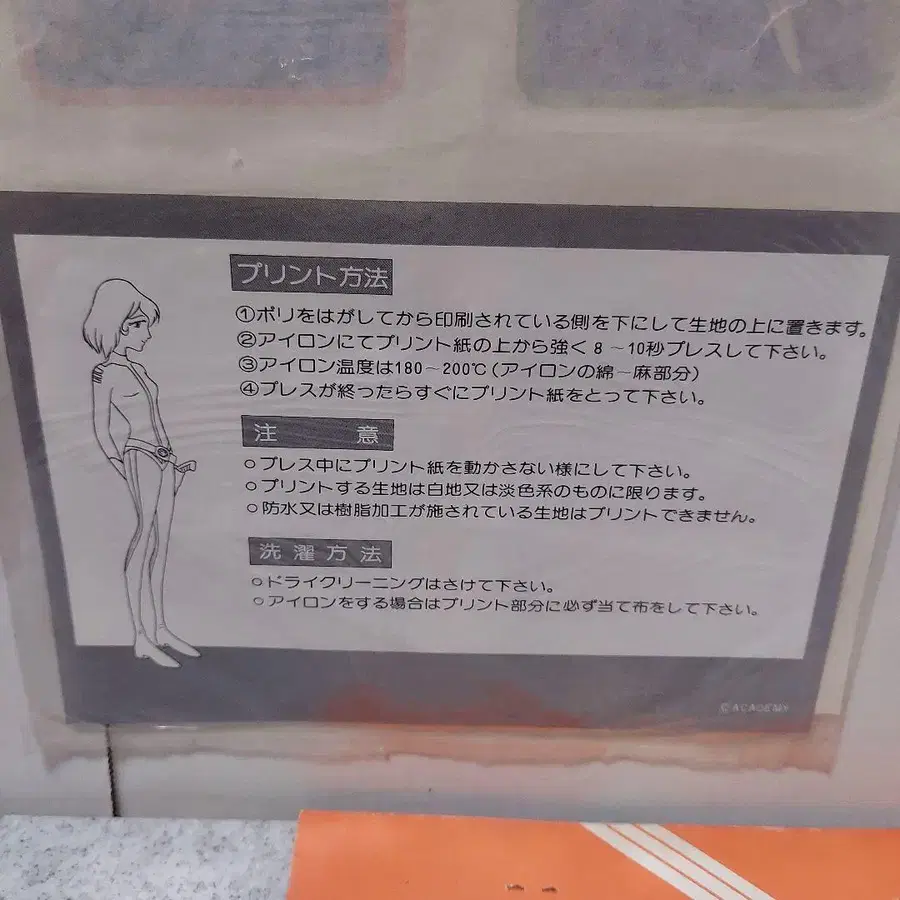 プリント方法
①ポリをはがしてから印刷されている側を下にして生地の上に置きます。
②アイロンにてプリント紙の上から強く8～10秒プレスして下さい。
③アイロン温度は180～200℃(アイロンの綿～麻部分)
④プレスが終ったらすぐにプリント紙をとって下さい。
注 意
○プレス中にプリント紙を動かさない様にして下さい。
○プリントする生地は白地又は淡色系のものに限ります。
○防水又は樹脂加工が施されている生地はプリントできません。
洗濯方法
○ドライクリーニングはさけて下さい。
○アイロンをする場合はプリント部分に必ず当て布をして下さい。
©ACADEMY